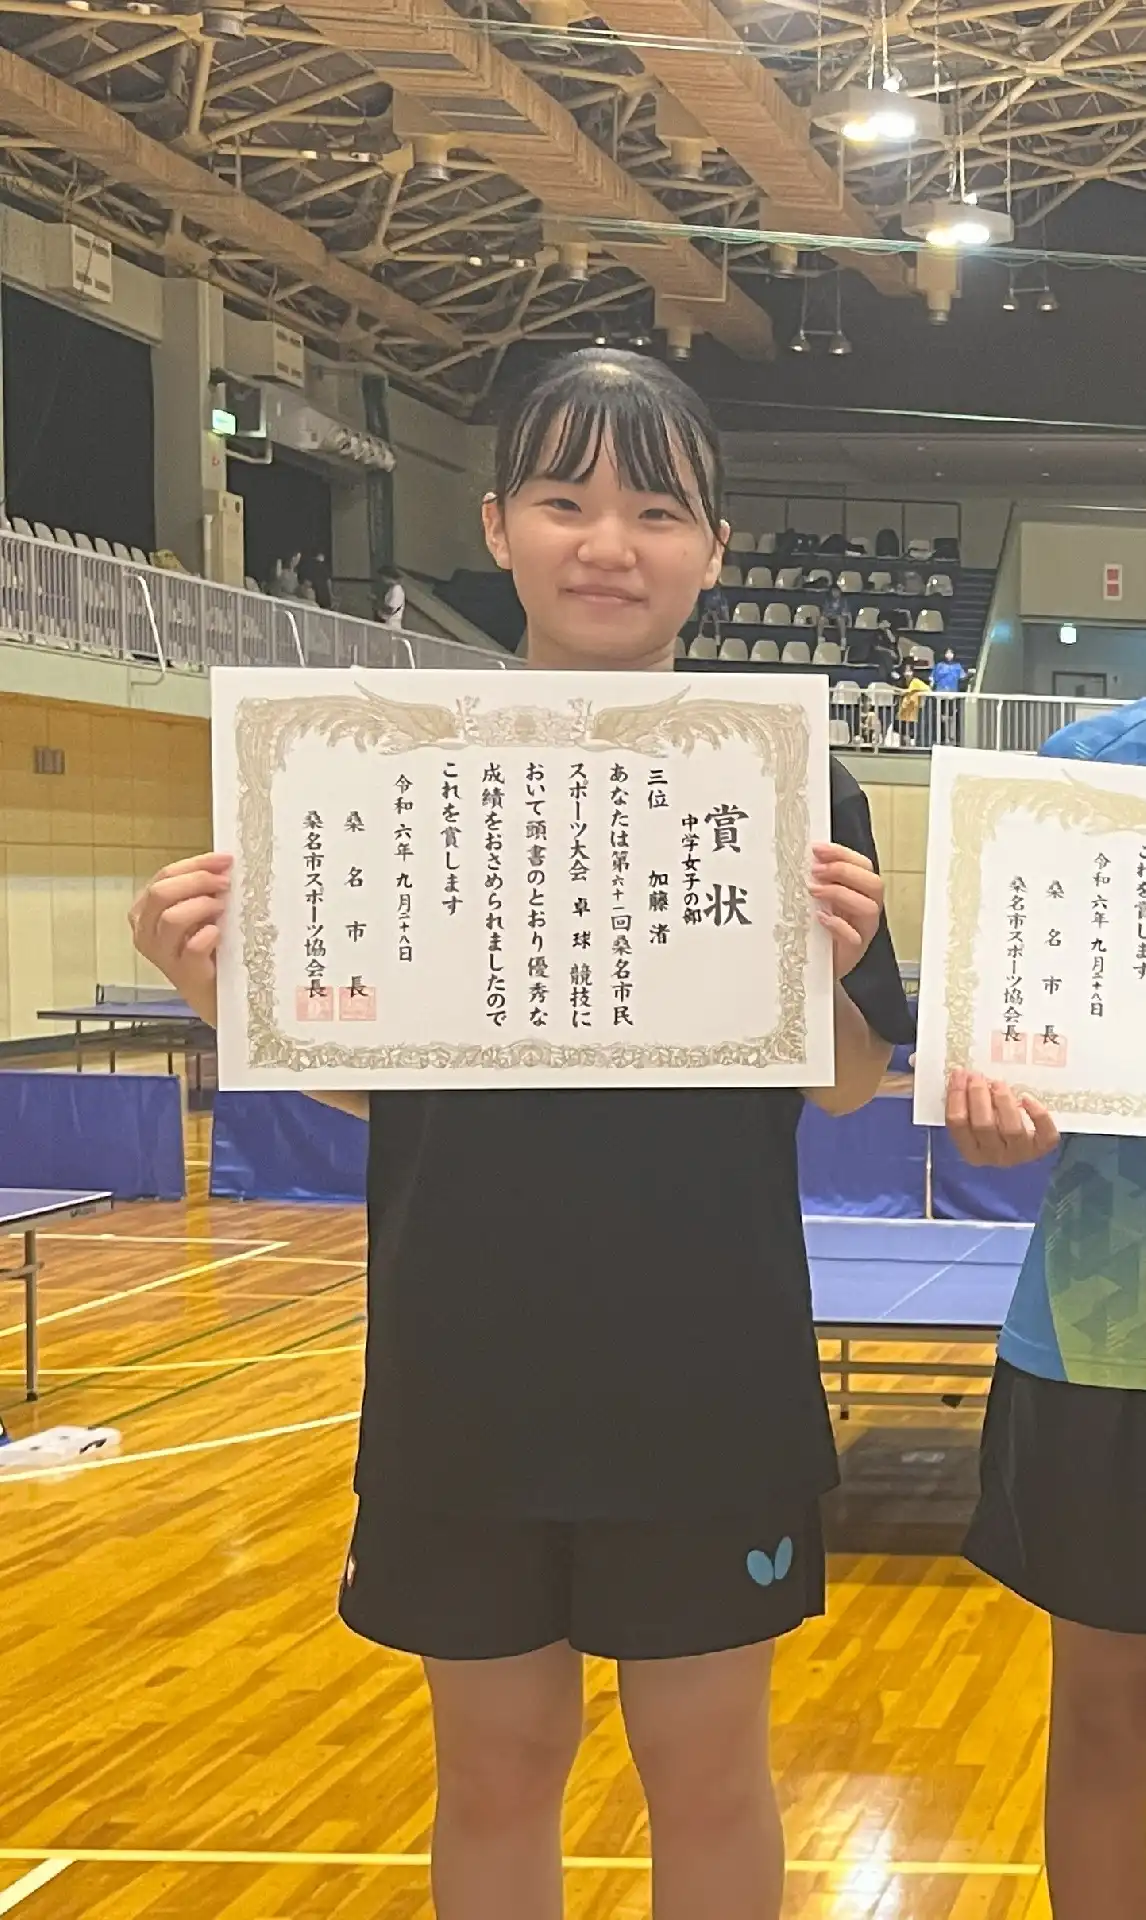 賞状
中学女子の部
三位 加藤 渚
あなたは第六十二回桑名市民
スポーツ大会 卓球 競技に
おいて頭書のとおり優秀な
成績をおさめられましたので
これを賞します
令和六年 九月二十八日
桑名市長
桑名市スポーツ協会長
これを賞します
令和六年 九月二十八日
桑名市長
桑名市スポーツ協会長